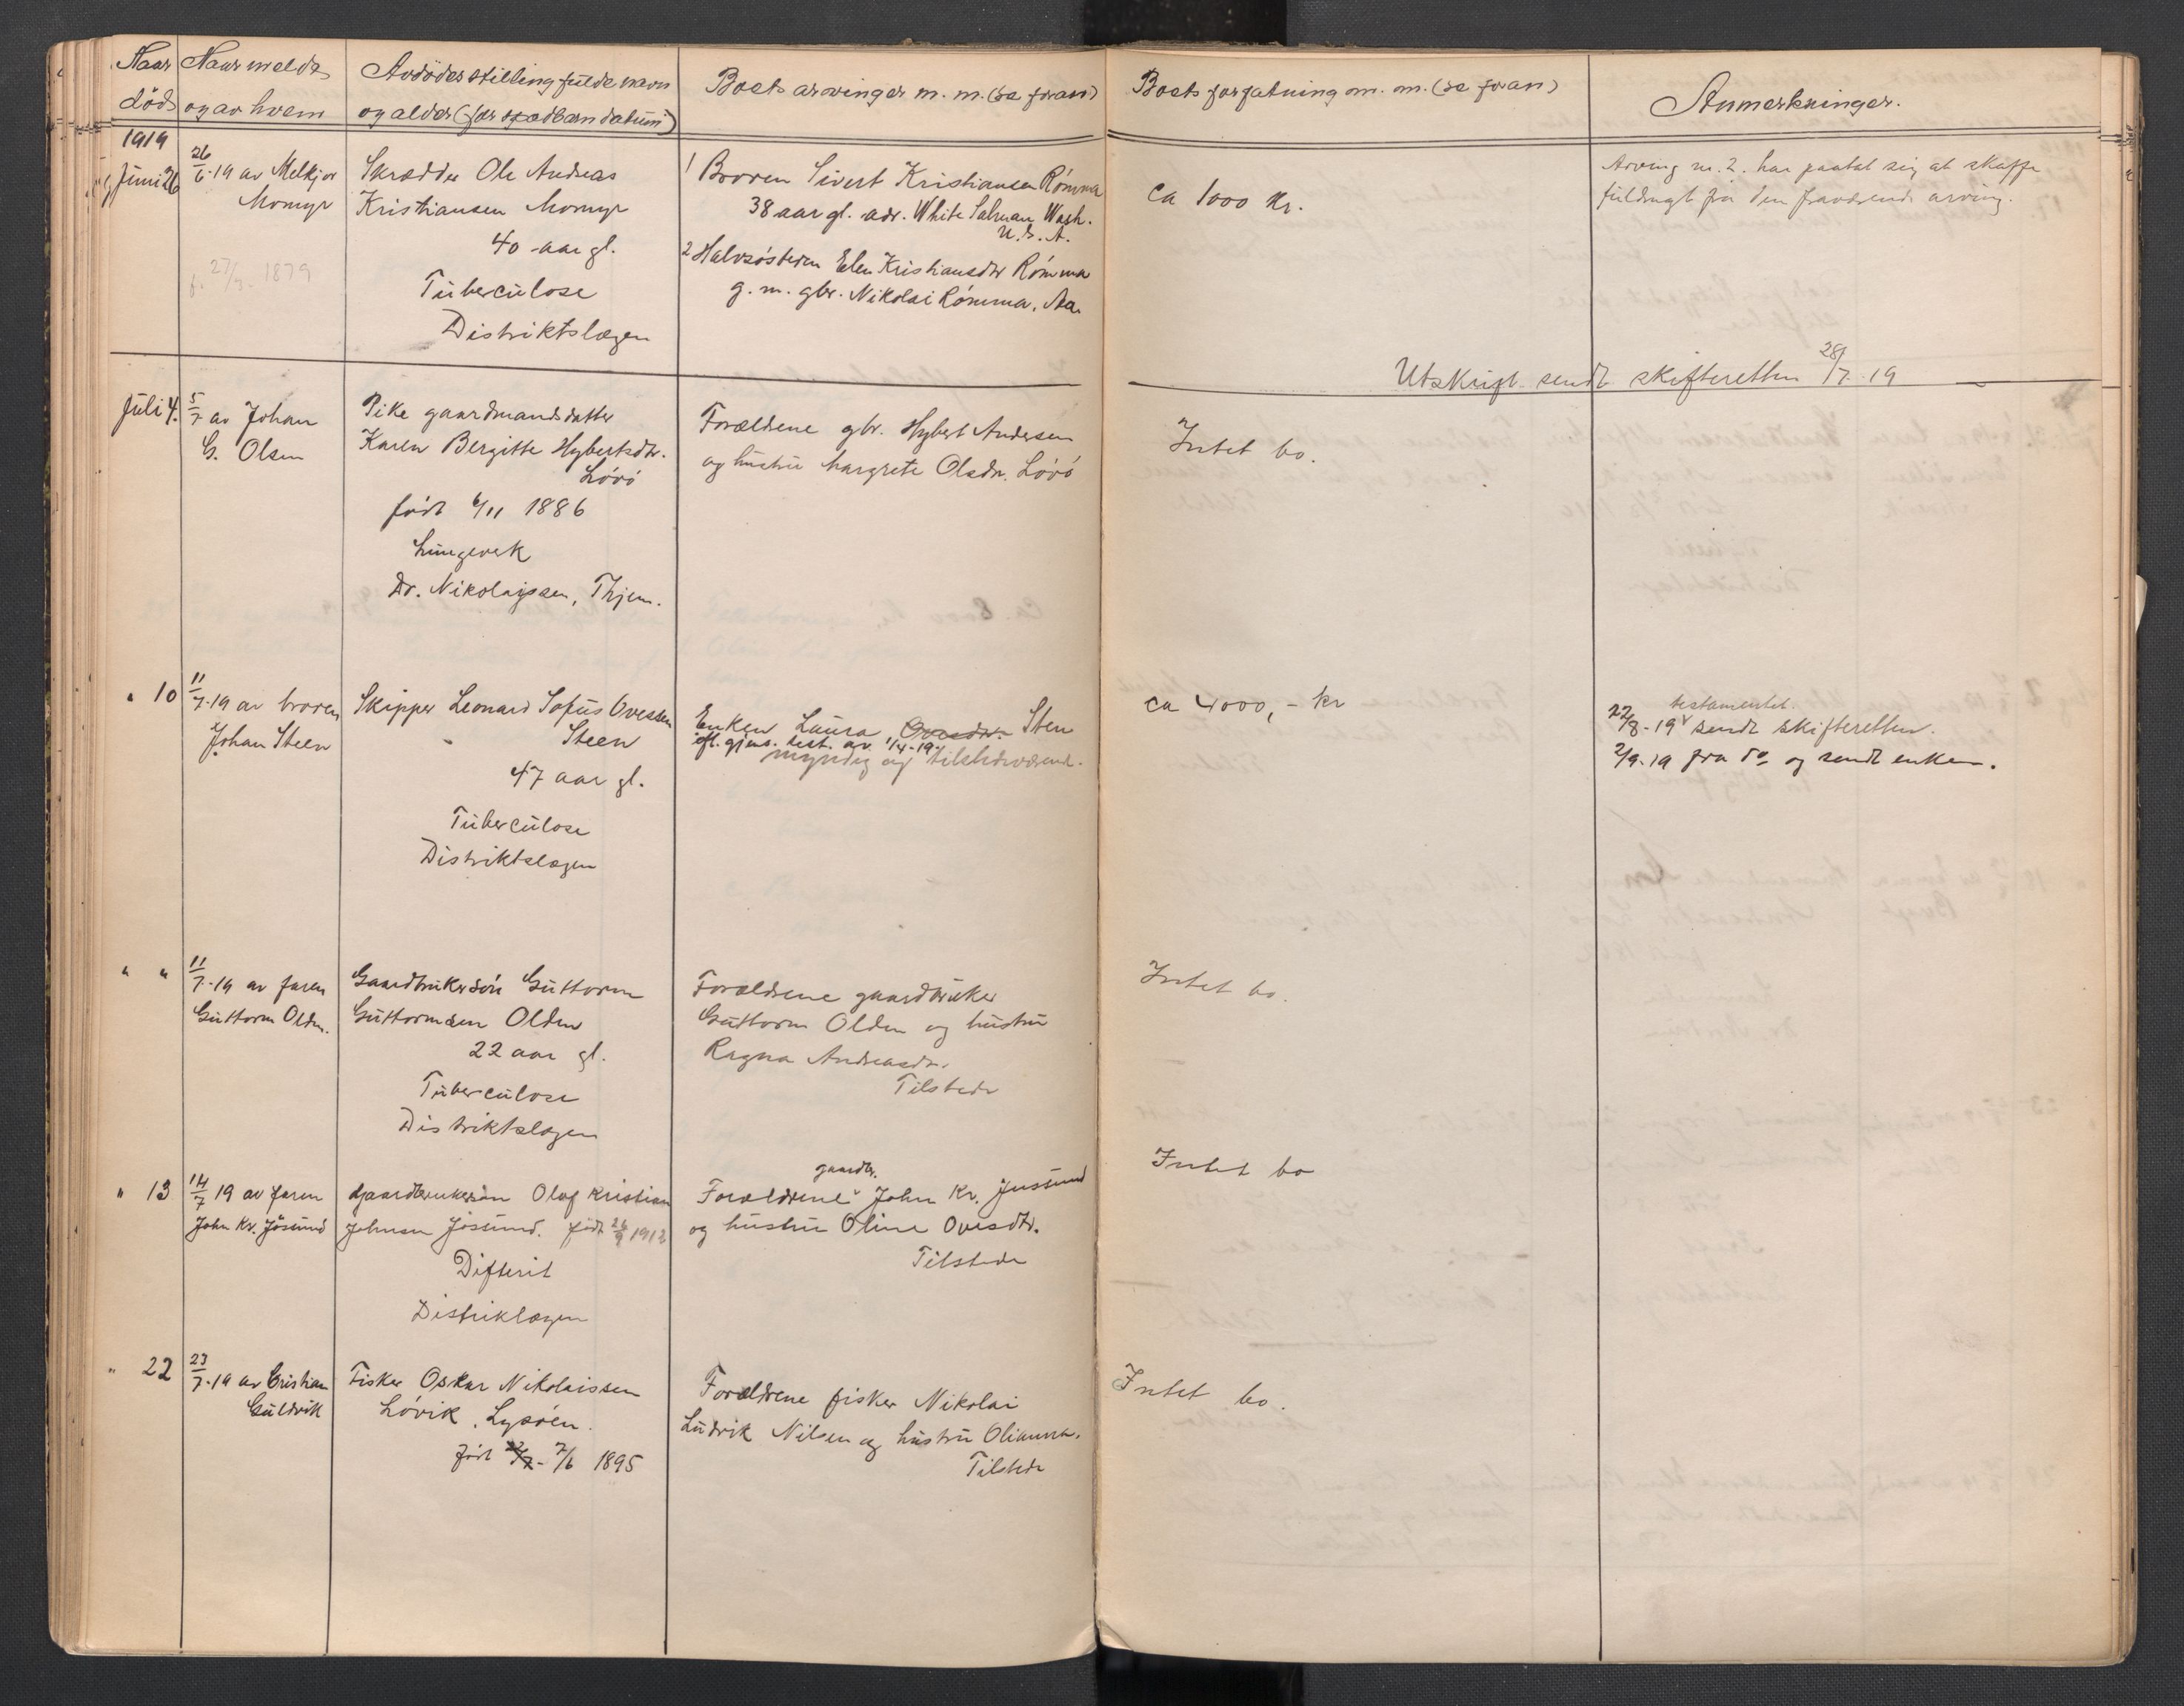 Naar død
Naar meldt og av hvem
Avdødes stilling fulde navn og alder (for spædbarn datum)
Boets arvinger m. m. (se foran)
Boets forfatning m. m. (se foran)
Anmerkninger.
1919
Juni 26
26/6-19 av Melkjor
Momyr
Skrædder Ole Andreas
Kristiansen Momyr
40 aar gl.
f. 27/3-1879
Tuberculose
Distriktslægen
1 Broren Sivert Kristiansen Rømma
38 aar gl. adr. White Salman Wash.
U.S.A.
2 Halvsøsteren Elen Kristiansdtr Rømma
g. m. gbr. Nikolai Rømma, Aa.
ca 1000 kr.
Arving nr. 2. har paatat sig at skaffe
fuldmagt fra den fraværende arving.
Utskrift sendt skifteretten 28/7-19
Juli 4.
5/7 av Johan
G. Olsen
Pike gaardmandsdatter
Karen Bergitte Hybertsdtr.
Løvø
født 6/11 1886
Lungevek
Dr. Nikolaissen, Thjem.
Forældrene gbr. Hybert Andersen
og hustru Margrete Olsdtr. Løvø
Intet bo.
" 10
11/7-19 av broren
Johan Steen
Skipper Leonard Sofus Ovessen
Steen
47 aar gl.
Tuberculose
Distriktslægen
Enken Laura Ovesdtr. Sten
efl. gjens. test. av 1/4-19.
myndig og tilstedeværende.
ca 4000,- kr
testamentet.
22/8-19 sendt skifteretten.
2/9-19 fra do og sendt enken.
" "
11/7-19 av faren
Guttorm Olden.
Gaardbrukersøn Guttorm
Guttormsen Olden
22 aar gl.
Tuberculose
Distriktslægen
Forældrene gaardbruker
Guttorm Olden og hustru
Ragna Andreasdtr.
Tilstede
Intet bo.
" 13
14/7 19 av faren
John Kr. Jøssund
Gaardbrukersøn Olaf Kristian
Johnsen Jøssund. født 26/9 1912
Difterit
Distriklægen
gaardbr.
Forældrene John Kr. Jussund
og hustru Oline Ovesdtr.
Tilstede
Intet bo
" 22
23/7-19 av Cristian
Guldvik
Fisker Oskar Nikolaissen
Løvik, Lysøen.
født 7/6 1895
Forældrene fisker Nikolai
Ludvik Nilsen og hustru Olianna.
Tilstede
Intet bo.